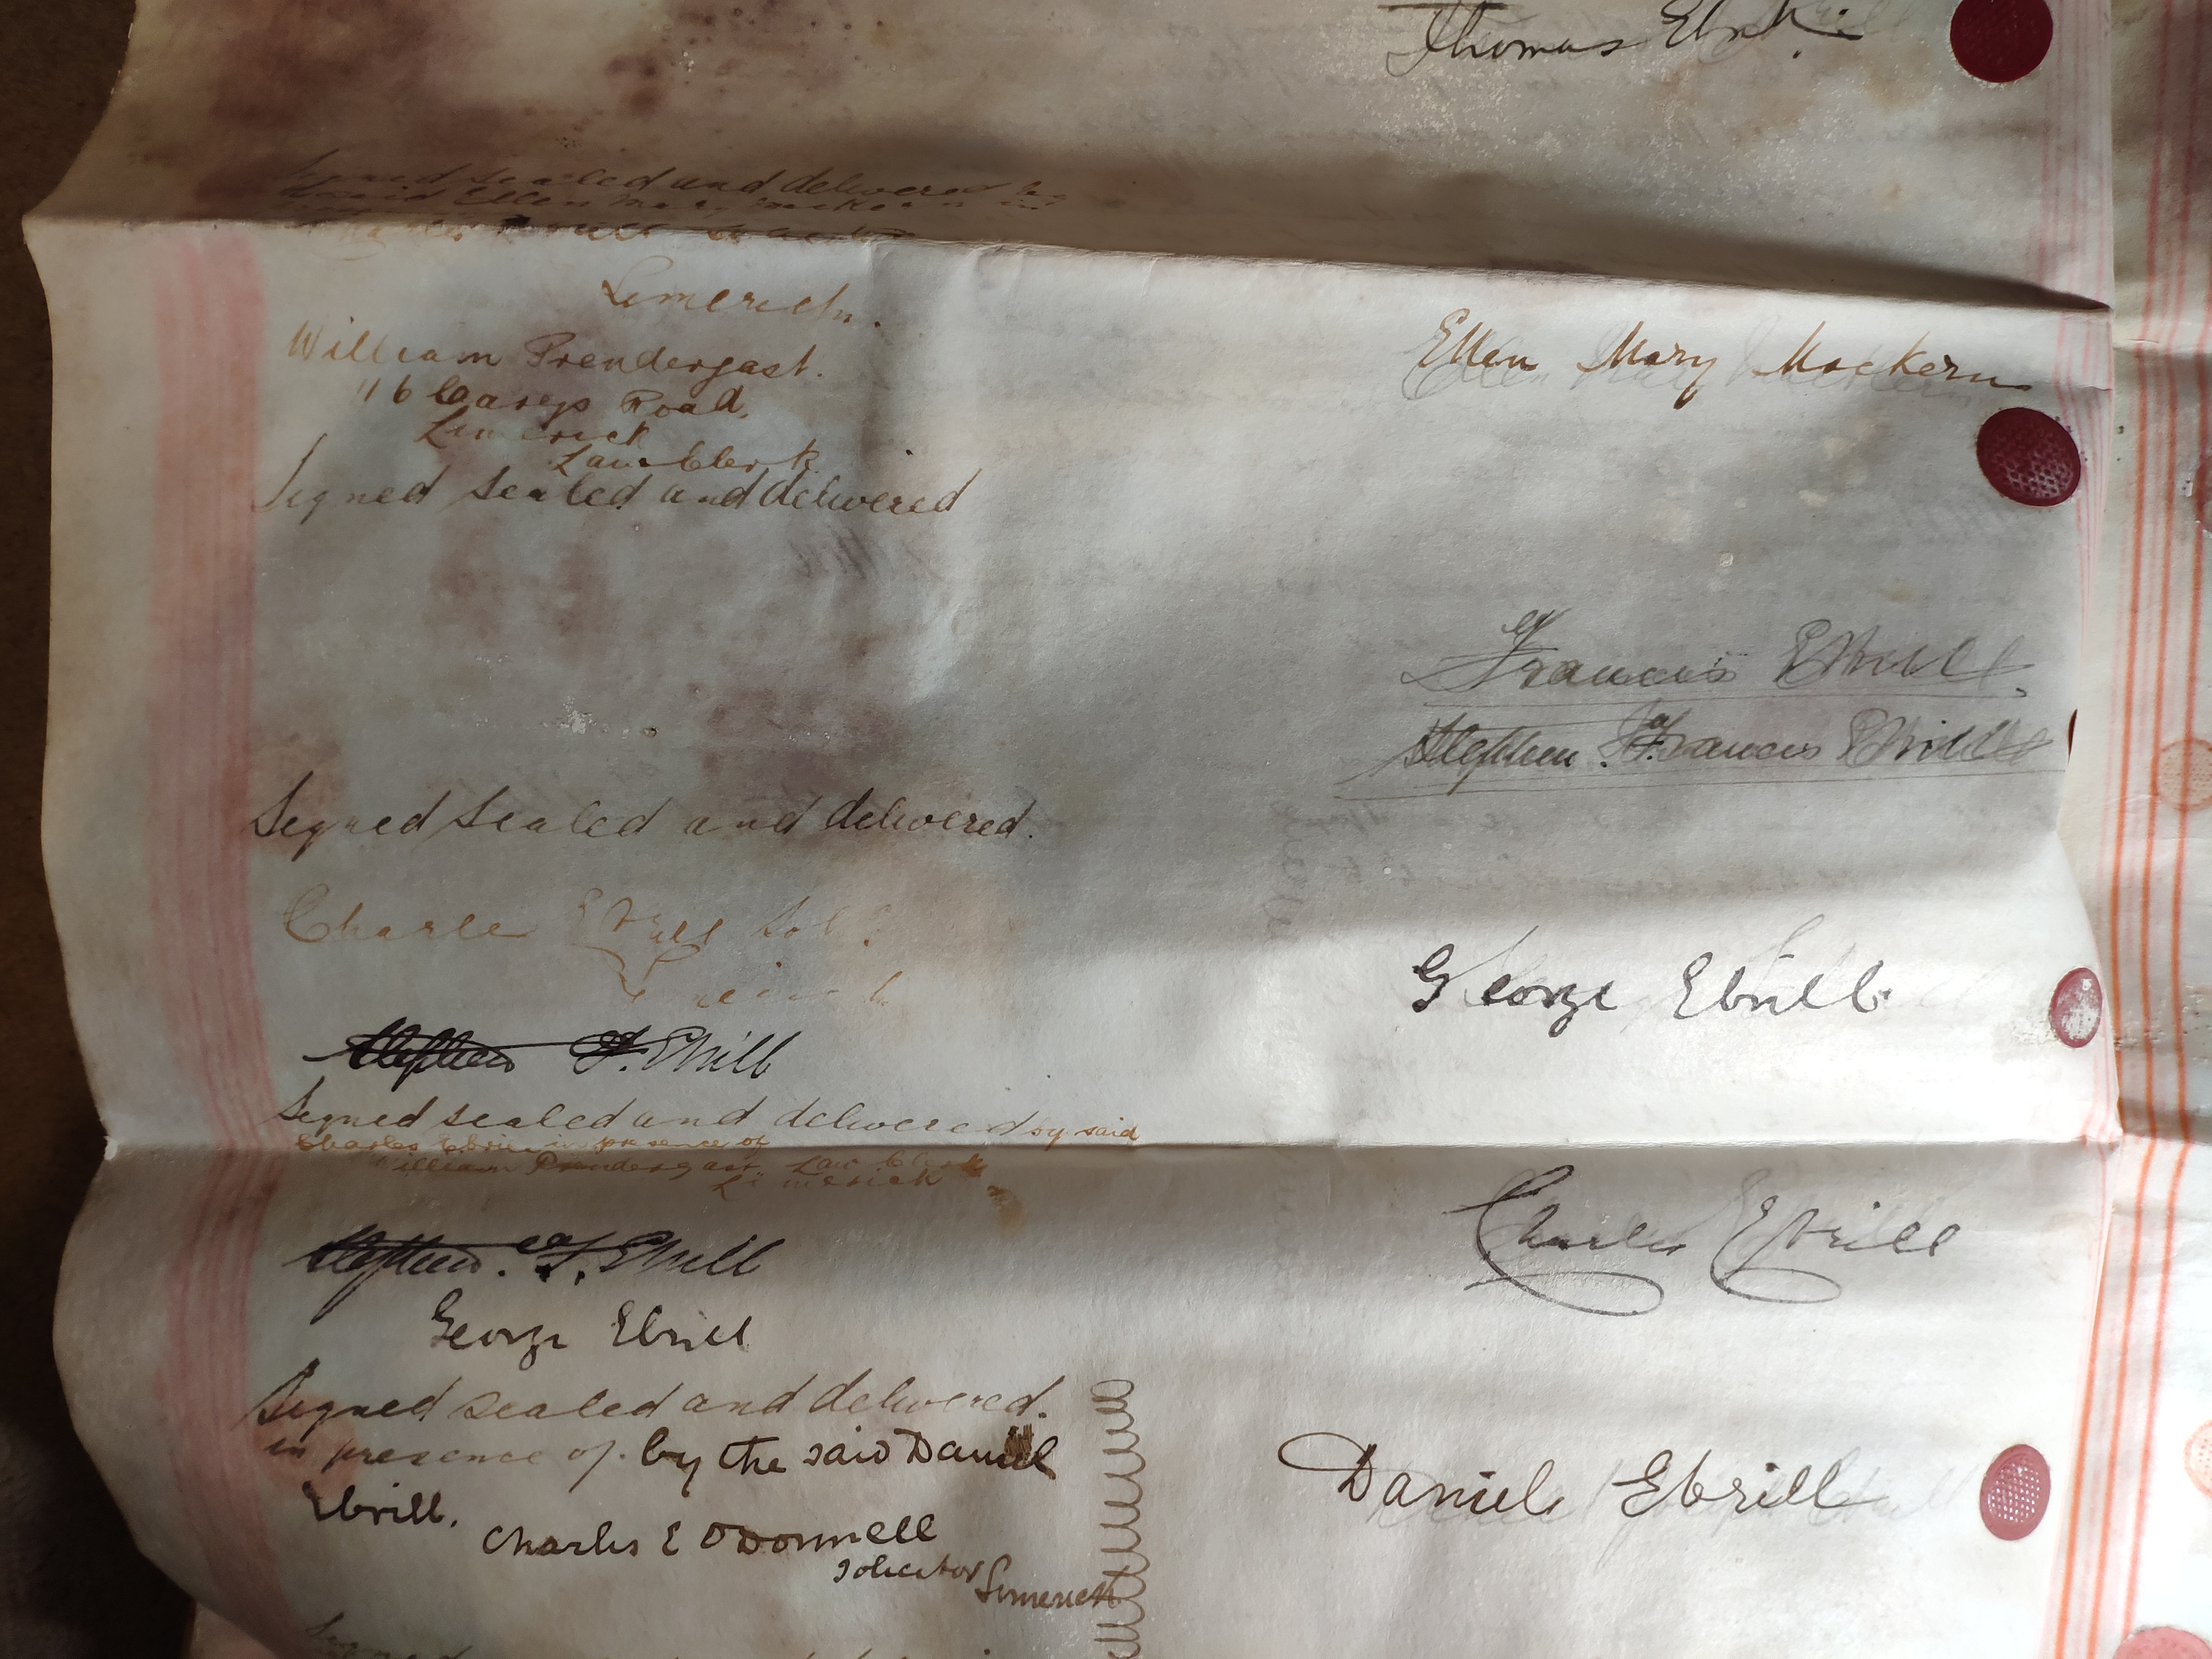 Thomas
Signed sealed and delivered by
said Ellen Mary Mackern in
Limerick.
William Prendergast.
Ellen Mary Mackern
116 Careys Road,
Limerick
Law Clerk
Signed sealed and delivered
Francis Ebrill.
Stephen Francis Ebrill
Signed sealed and delivered.
Charles Ebrill Solr
George Ebrill.
Stephen F. Ebrill
Signed sealed and delivered by said
Charles Ebrill in presence of
William Prendergast, Law Clerk
Limerick
Charles Ebrill
Stephen. F. Ebrill
George Ebrill
Signed sealed and delivered.
in presence of. by the said Daniel
Daniel Ebrill
Ebrill.
Charles E O'Donnell
Solicitor Limerick
Signed